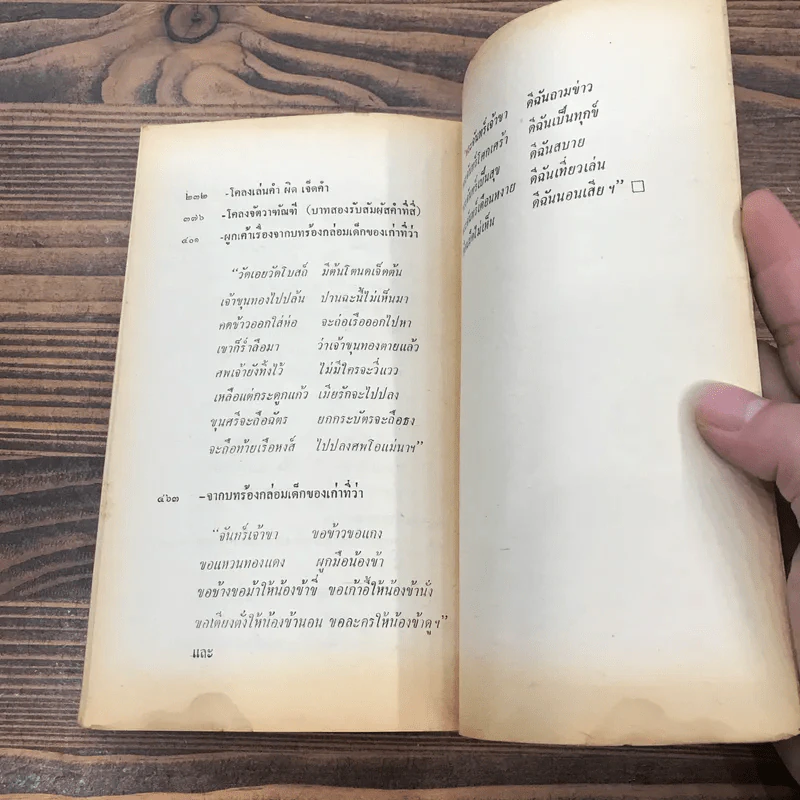 ๒๓๒ -โคลงเล่นคำ ผิด เจ็ดคำ
๓๗๖ -โคลงจัตวาทัณฑี (บาทสองรับสัมผัสคำที่สี่)
๔๐๑ -ผูกเค้าเรื่องจากบทร้องกล่อมเด็กของเก่าที่ว่า
“วัดเอยวัดโบสถ์ มีต้นโตนดเจ็ดต้น
เจ้าขุนทองไปปล้น ปานฉะนี้ไม่เห็นมา
คดข้าวออกใส่ห่อ จะถ่อเรือออกไปหา
เขาก็ร่ำลือมา ว่าเจ้าขุนทองตายแล้ว
ศพเจ้ายังทิ้งไว้ ไม่มีใครจะวี่แวว
เหลือแต่กระดูกแก้ว เมียรักจะไปปลง
ขุนศรีจะถือฉัตร ยกกระบัตรจะถือธง
จะถือท้ายเรือหงส์ ไปปลงศพโอแม่นาฯ”
๔๖๓ -จากบทร้องกล่อมเด็กของเก่าที่ว่า
“จันทร์เจ้าขา ขอข้าวขอแกง
ขอแหวนทองแดง ผูกมือน้องข้า
ขอช้างขอม้าให้น้องข้าขี่ ขอเก้าอี้ให้น้องข้านั่ง
ขอเตียงตั่งให้น้องข้านอน ขอละครให้น้องข้าดูฯ”
และ
จันทร์เจ้าขา ดีฉันถามข่าว
โศกเศร้า ดีฉันเป็นทุกข์
เป็นสุข ดีฉันสบาย
เดือนหงาย ดีฉันเที่ยวเล่น
ไม่เห็น ดีฉันนอนเสียฯ” □